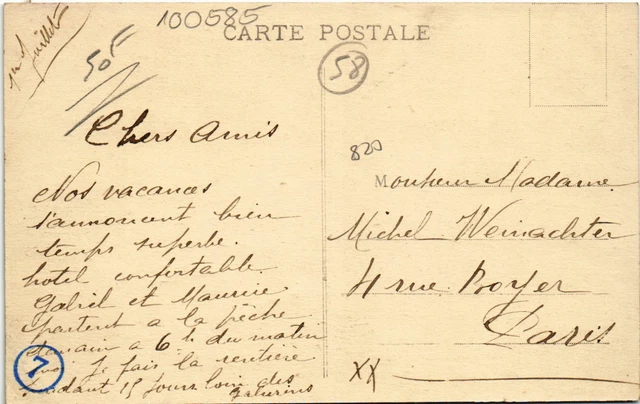 100585
CARTE POSTALE
58
Juillet
50F
Chers Amis
Nos vacances
s'annoncent bien
temps superbe.
hotel confortable.
Gabriel et Maurice
partent a la pêche
demain a 6 h du matin
moi Je fais la rentière
pendant 15 jours loin des
7
820
Monsieur Madame
Michel Weinachter
4 rue Boyer
Paris
XX